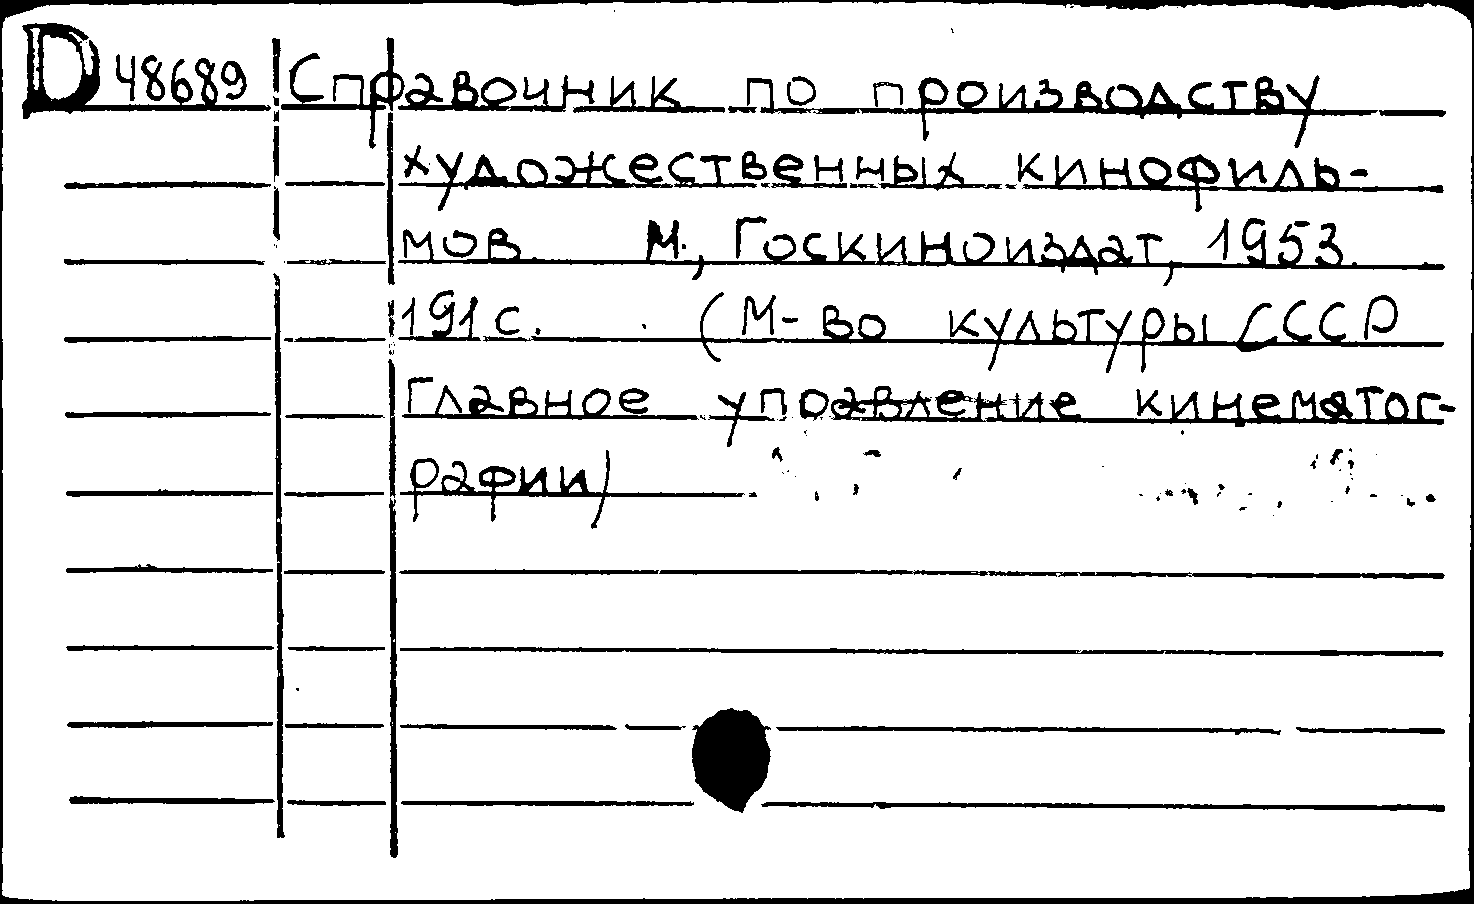 D 48689 Справочник по производству
художественных кинофиль-
мов. М., Госкиноиздат, 1953.
191 с. (М-во культуры СССР
Главное управление кинематог-
рафии)